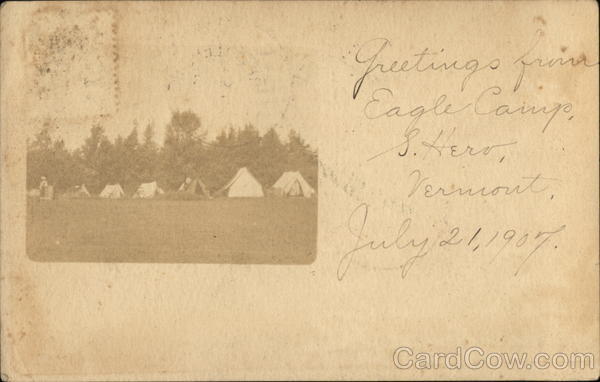 Greetings from
Eagle Camp,
S. Hero,
Vermont,
July 21, 1907.
CardCow.com